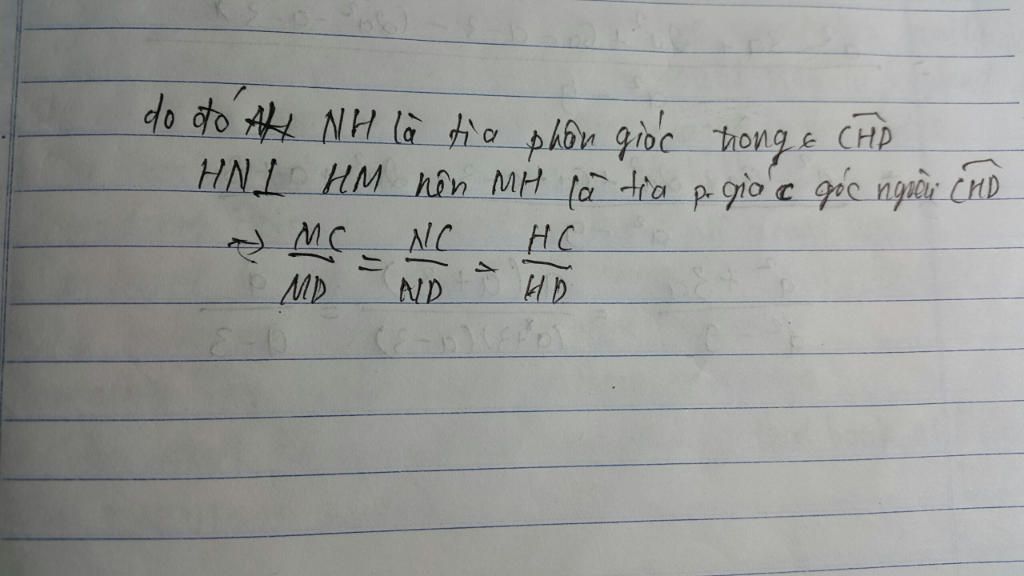 do đó NH là tia phân giác trong ϵ \widehat{CHD}
HN⊥ HM nên MH là tia p.giác góc ngoài \widehat{CHD}
=> \frac{MC}{MD} = \frac{NC}{ND} = \frac{HC}{HD}